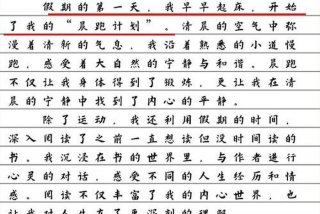 假期的第一天，我早早起床，开始
了我的“晨跑计划”。清晨的空气中弥
漫着清新的气息，我沿着熟悉的小道慢
跑，感受着大自然的宁静与和谐。晨跑
不仅让我身体得到了锻炼，更让我在清
晨的宁静中找到了内心的平静。
除了运动，我还利用假期的时间，
深入阅读了之前一直想读但没时间读的
书。我沉浸在书的世界里，与作者进行
心灵的对话，感受不同的人生经历和情
感。阅读不仅丰富了我的内心世界，也
让我对人生有了更深刻的理解